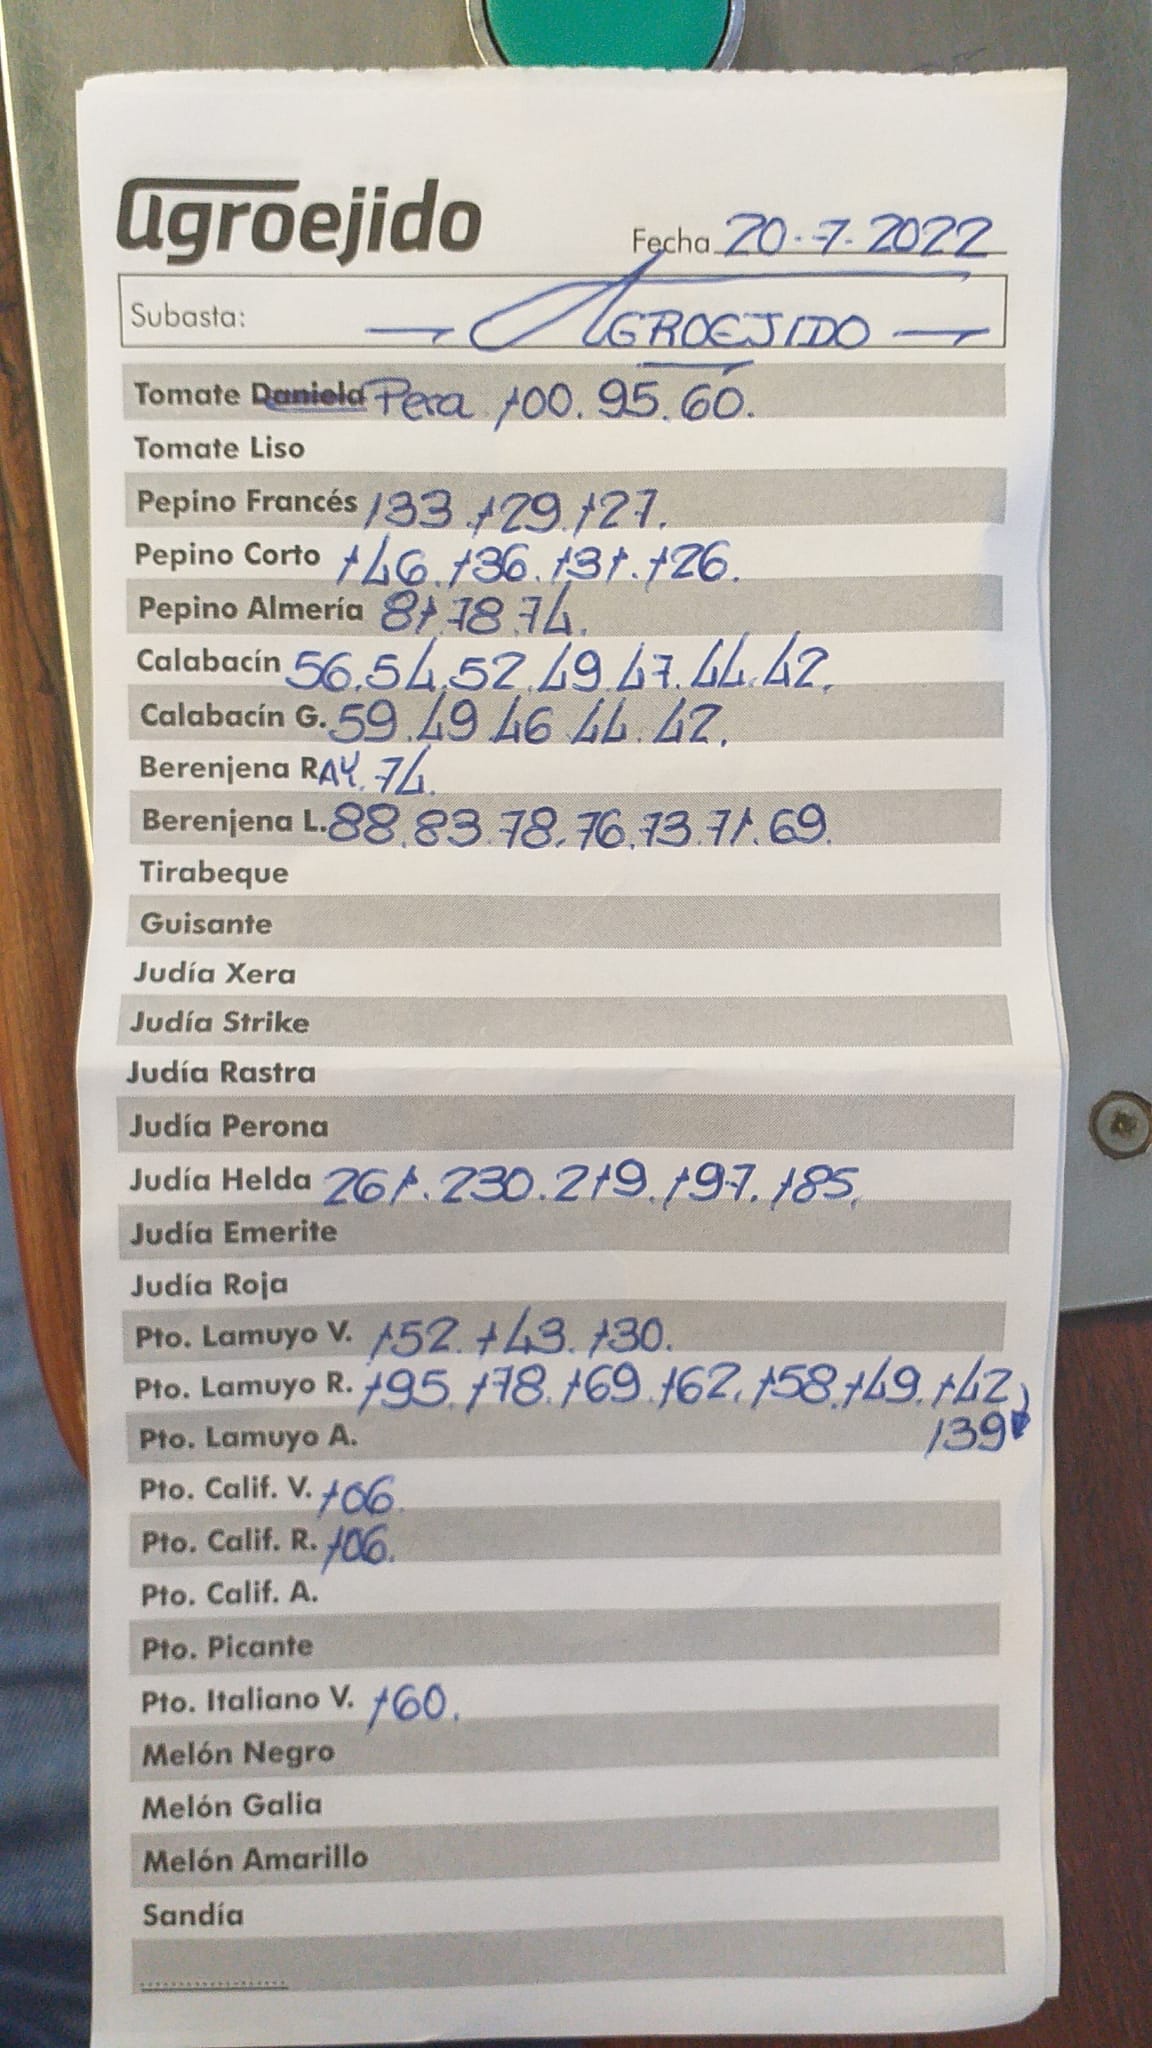 agroejido
Fecha 20.7.2022
Subasta: — AGROEJIDO —
Tomate Daniela Pera 100. 95. 60.
Tomate Liso
Pepino Francés 133. 129. 127.
Pepino Corto 146. 136. 131. 126.
Pepino Almería 81. 78. 74.
Calabacín 56. 54. 52. 49. 47. 44. 42.
Calabacín G. 59. 49. 46. 44. 42.
Berenjena RAY. 74.
Berenjena L. 88. 83. 78. 76. 73. 71. 69.
Tirabeque
Guisante
Judía Xera
Judía Strike
Judía Rastra
Judía Perona
Judía Helda 261. 230. 219. 197. 185.
Judía Emerite
Judía Roja
Pto. Lamuyo V. 152. 143. 130.
Pto. Lamuyo R. 195. 178. 169. 162. 158. 149. 142
139
Pto. Lamuyo A.
Pto. Calif. V. 106.
Pto. Calif. R. 106.
Pto. Calif. A.
Pto. Picante
Pto. Italiano V. 160.
Melón Negro
Melón Galia
Melón Amarillo
Sandía